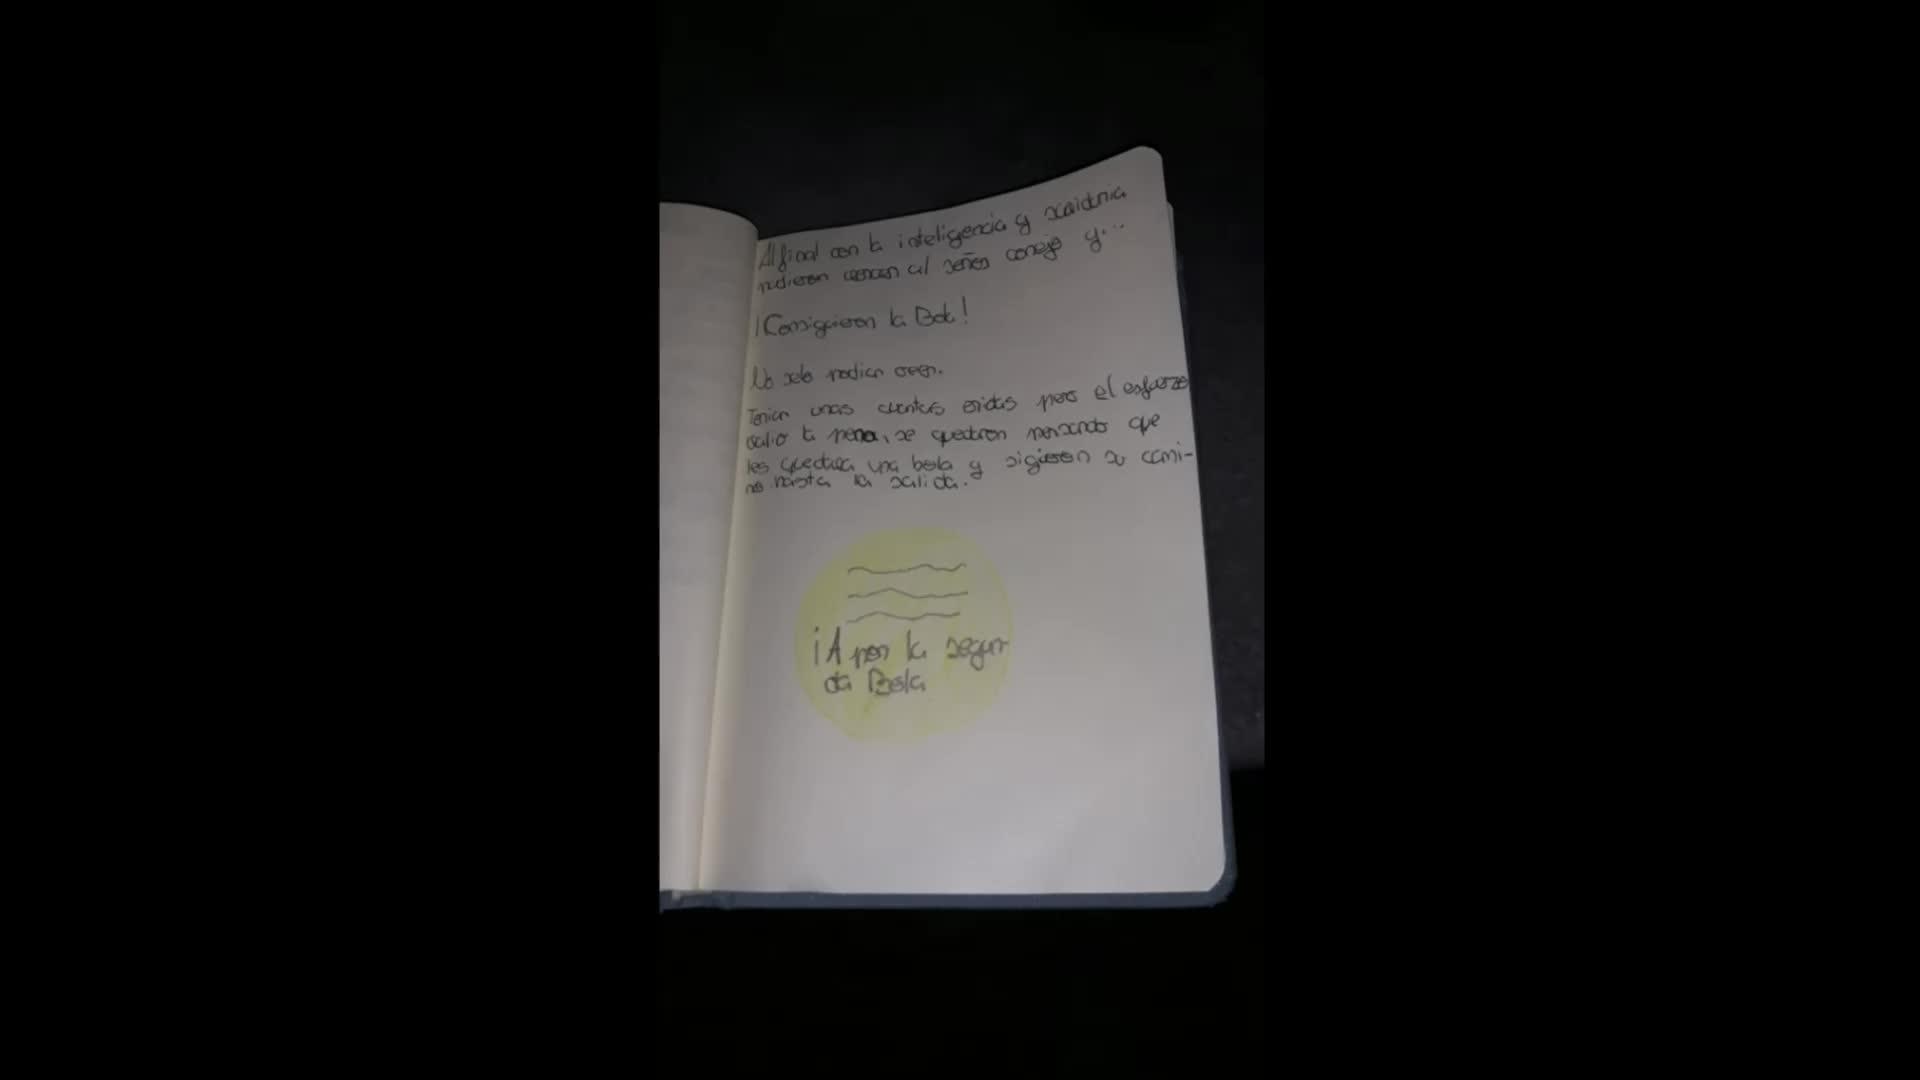 Al final con la inteligencia y xaiduria
pudieron vencer al señor conejo y...
¡Consiguieron la Bola!
No selo podian creer.
Tenian unas cuantas eridas pero el esfuerzo
valio la pena, se quedaron pensando que
les quedaba una bola y sigieron su cami-
no hasta la salida.
¡A por la segun-
da Bola